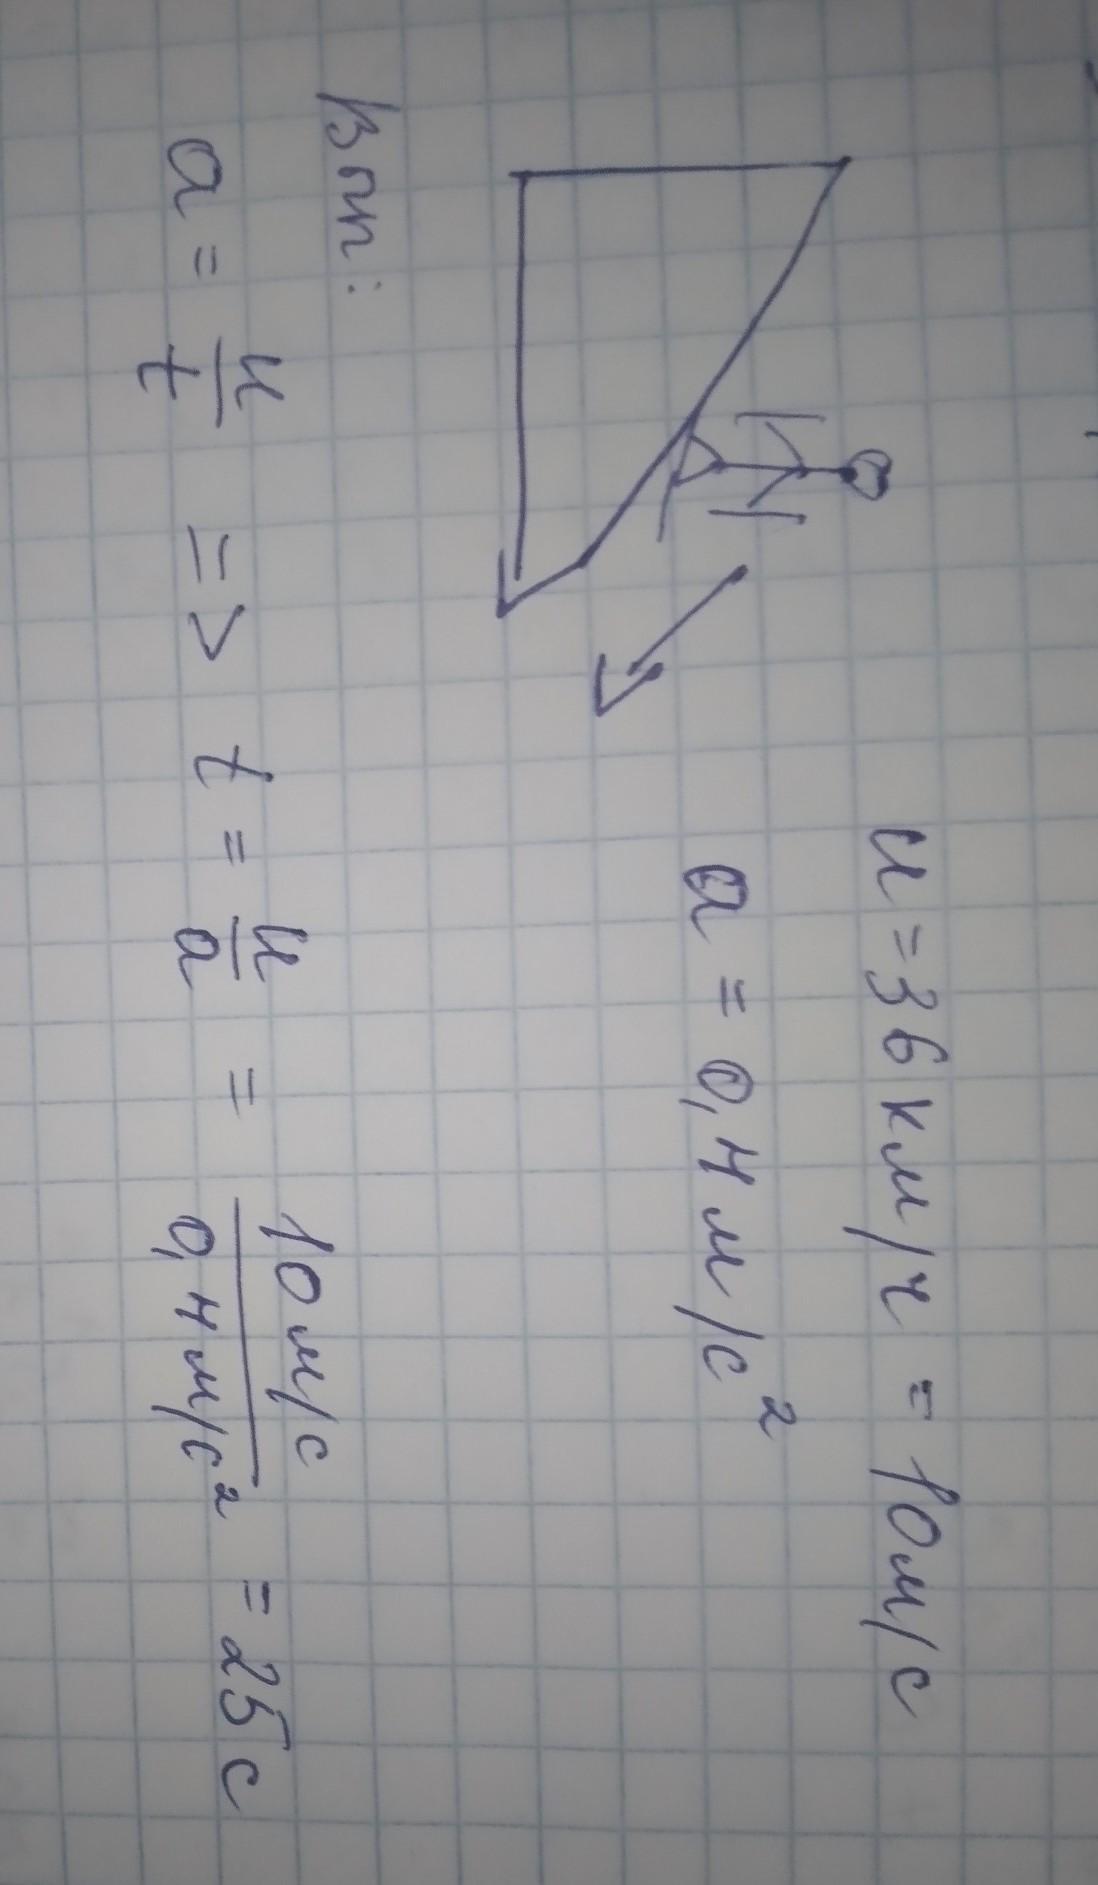 u = 36 км/ч = 10 м/с
a = 0,4 м/с²
Вып:
a = u/t => t = u/a = 10 м/с / 0,4 м/с² = 25 с